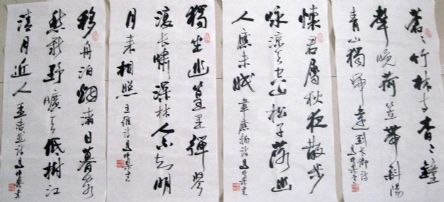 蒼々竹林寺杳々鐘
聲晚荷笠帶斜陽
青山獨歸遠 劉長卿詩
懷君屬秋夜散步
詠涼天空山松子落幽
人應未眠 韋應物詩
獨坐幽篁里彈琴
復長嘯深林人不知明
月来相照 王維詩
移舟泊烟渚日暮客
愁新野曠天低樹江
清月近人 孟浩然詩